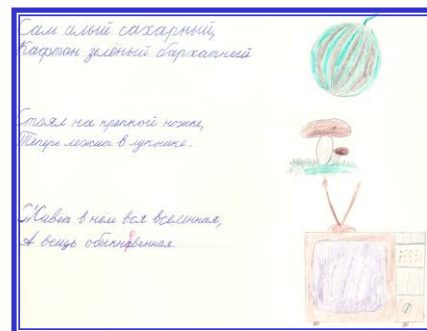 Сам алый сахарный,
Кафтан зелёный бархатный
Стоял на крепкой ножке,
Теперь лежит в лукошке.
Живет в нём вся вселенная,
А вещь обыкновенная.